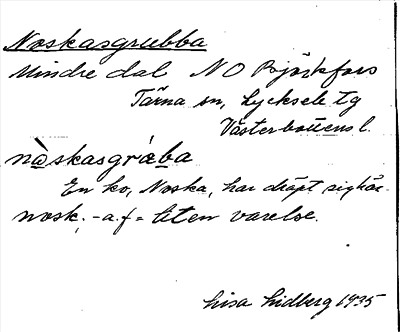 Noskasgrubba
Mindre dal NO Björkfors
Tärna sn, Lycksele tg
Västerbottens l.
nàskasgràba
En ko, Noska, har dräpt sig här.
nosk, -a.f = liten varelse.
Lisa Lidberg 1935